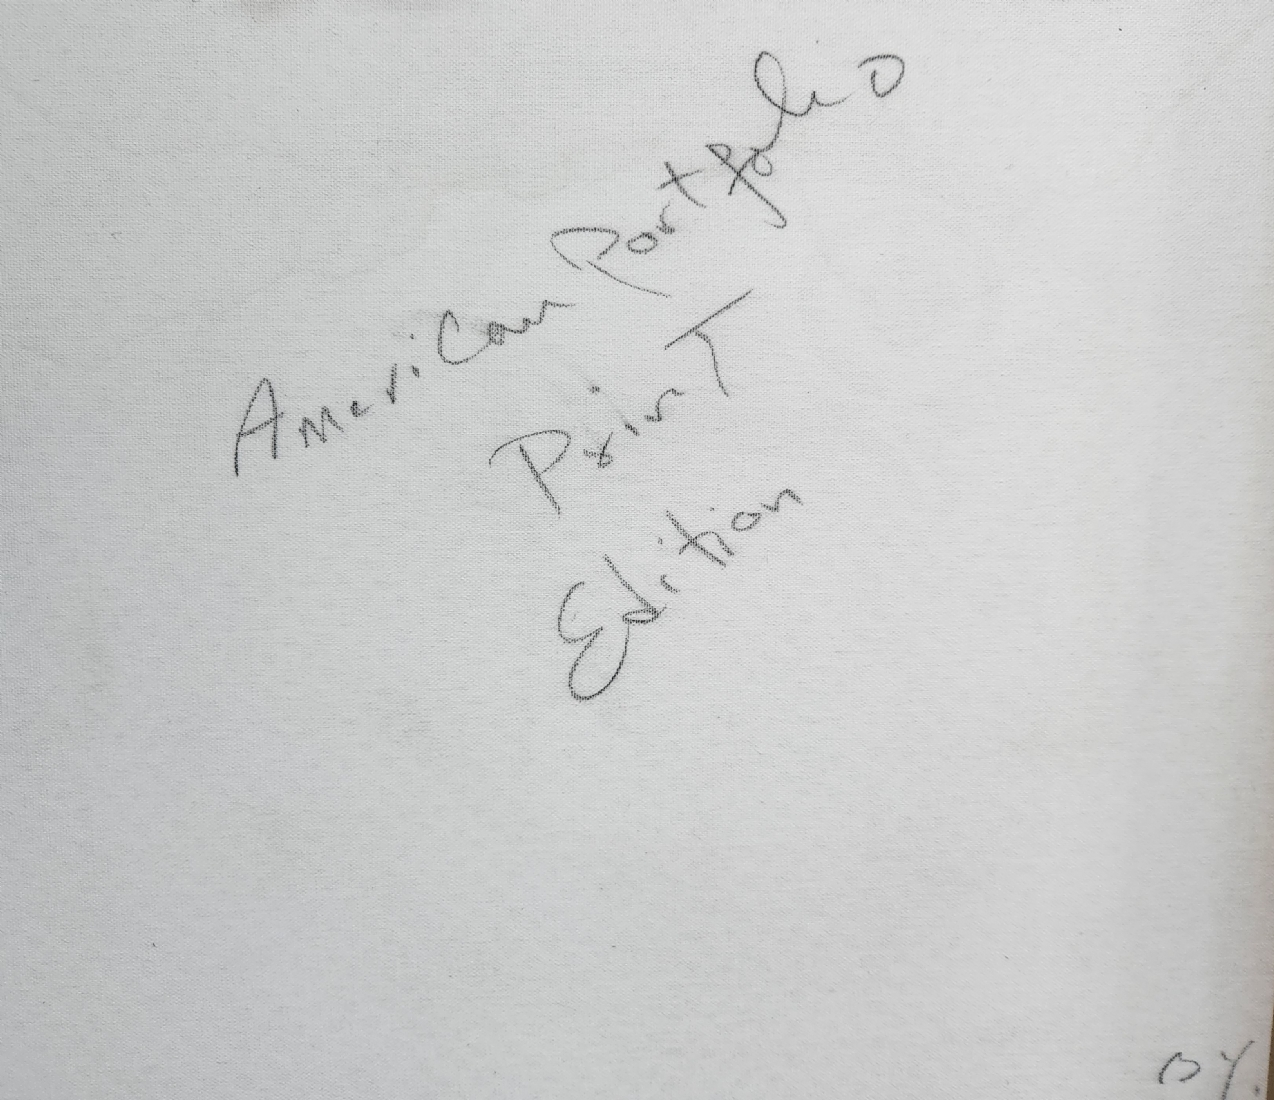 American Portfolio
PrinT
Edition